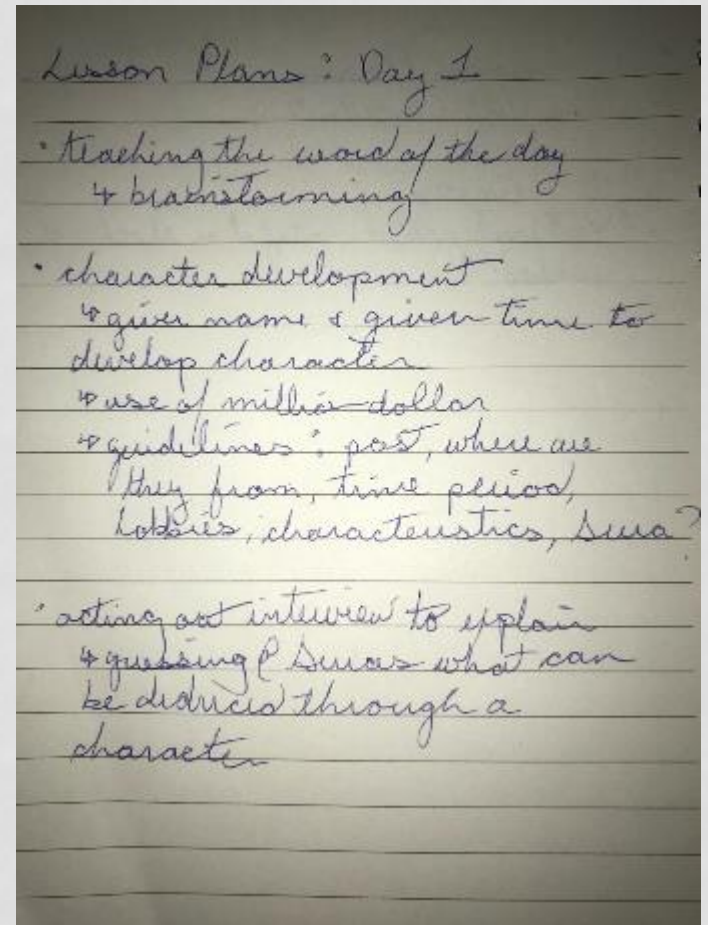 Lesson Plans: Day 1
• teaching the word of the day
↳ brainstorming
• character development
↳ given name & given time to
develop character
↳ use of million dollar
↳ guidelines: past, where are
they from, time period,
hobbies, characteristics,
• acting out interview to explain
↳ guessing what can
be deduced through a
character